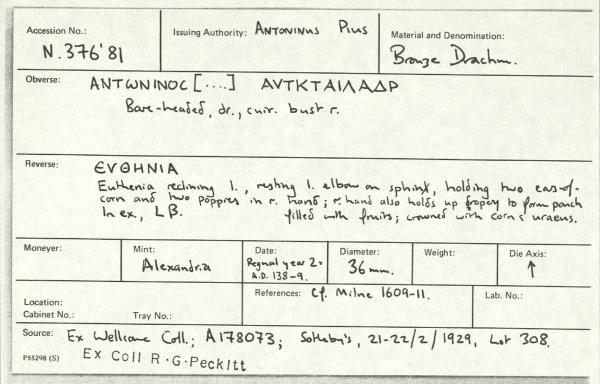 Accession No.: N.376'81
Issuing Authority: ANTONINUS PIUS
Material and Denomination: Bronze Drachm.
Obverse: ΑΝΤΩΝΙΝΟC [....] ΑVΤΚΤΑΙΛΑΔΡ
Bare-headed, dr., cuir. bust r.
Reverse: ЄVΘΗΝΙΑ
Euthenia reclining l., resting l. elbow on sphinx, holding two ears-of-
corn and two poppies in r. hand; r. hand also holds up drapery to form pouch
In ex., L B. filled with fruits; crowned with corn & uraeus.
Moneyer:
Mint: Alexandria
Date: Regnal year 2 = A.D. 138-9.
Diameter: 36 mm.
Weight:
Die Axis: ↑
References: Cf. Milne 1609-11.
Lab. No.:
Location:
Cabinet No.: Tray No.:
Source: Ex Wellcome Coll.; A178073; Sotheby's, 21-22/2/1929, Lot 308.
PS5298 (S) Ex Coll R.G. Peckitt